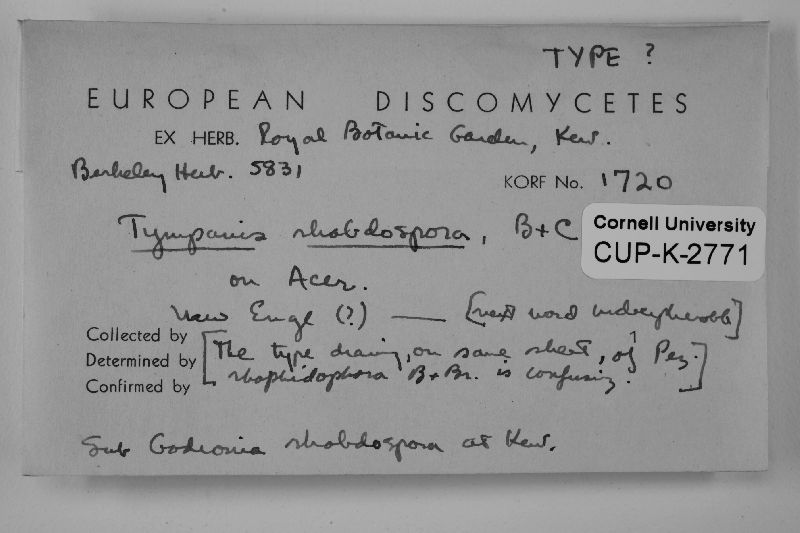 TYPE ?
EUROPEAN DISCOMYCETES
EX HERB. Royal Botanic Garden, Kew.
Berkeley Herb. 5831
KORF No. 1720
Tympanis rhabdospora, B+C
Cornell University
CUP-K-2771
on Acer.
New Engl (?) — [next word undecipherable]
Collected by
Determined by
Confirmed by
[The type drawing, on same sheet, of Pez.
rhaphidophora B+Br. is confusing.]
Sub Godronia rhabdospora at Kew.